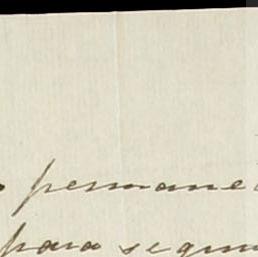 permane
para segun